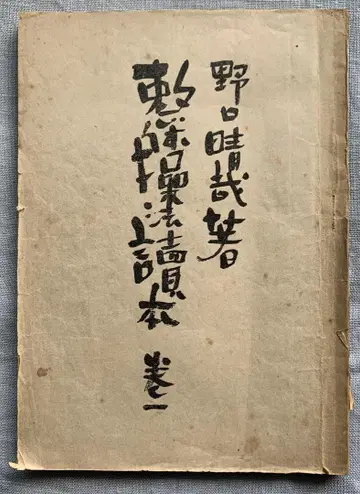 野口晴哉著
整体操法讀本 巻一